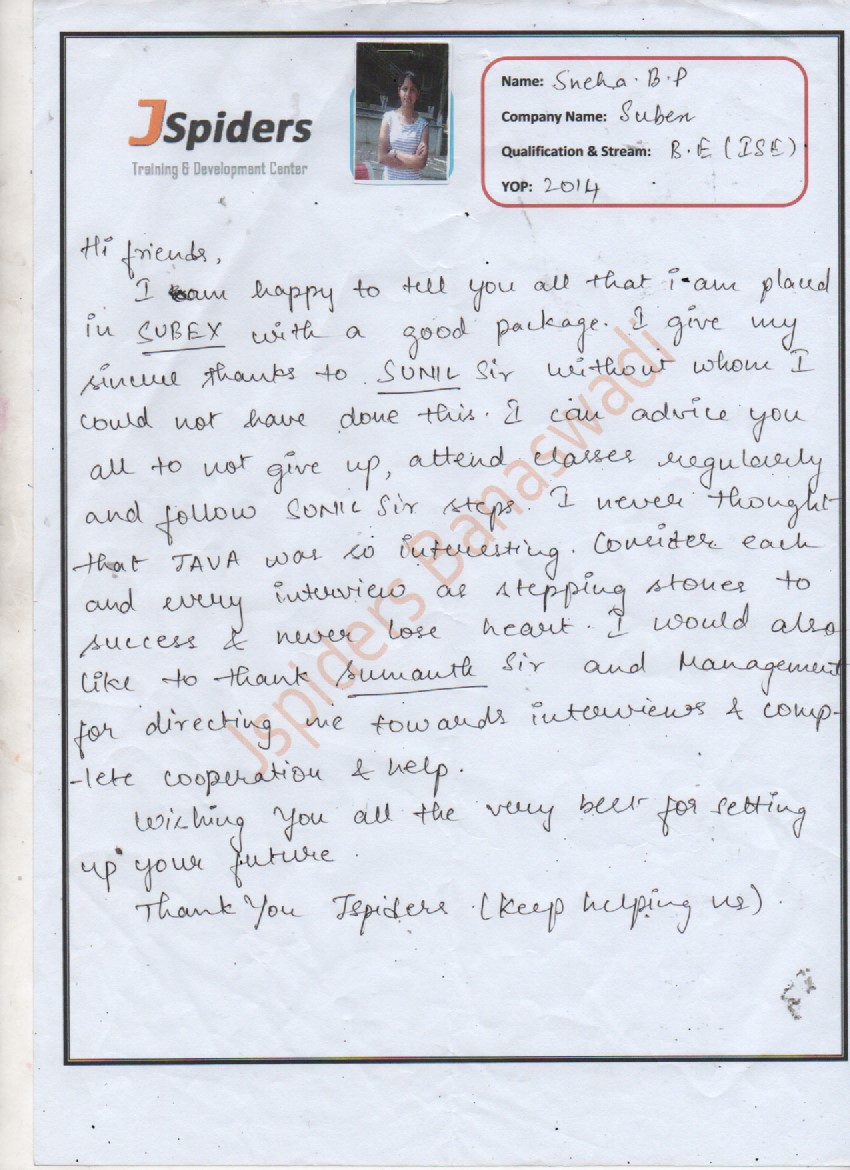 JSpiders
Training & Development Center
Name: Sneha. B. P
Company Name: Subex
Qualification & Stream: B.E (ISE)
YOP: 2014
Hi friends,
I am happy to tell you all that i am placed
in SUBEX with a good package. I give my
sincere thanks to SUNIL Sir without whom I
could not have done this. I can advice you
all to not give up, attend classes regularly
and follow SUNIL Sir steps. I never thought
that JAVA was so interesting. Consider each
and every interview as stepping stones to
success & never lose heart. I would also
like to thank Sumanth Sir and Management
for directing me towards interviews & comp-
-lete cooperation & help.
Wishing You all the very best for setting
up your future.
Thank You Jspiders. (Keep helping us).
Jspiders Banaswadi